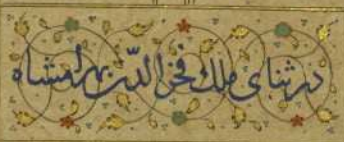 در ثنای ملک فخر الدین بهرامشاه